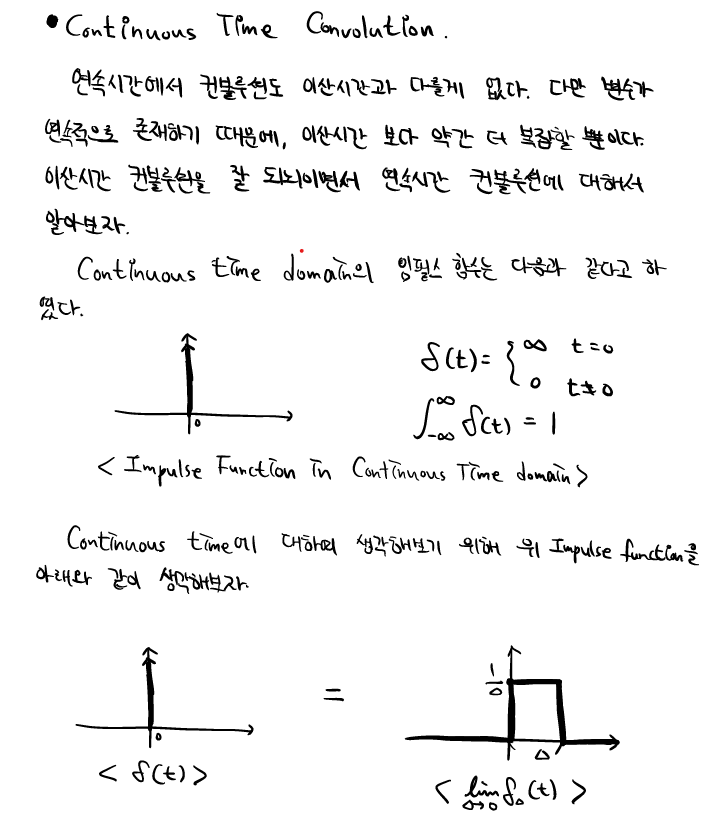 • Continuous Time Convolution.
연속시간에서 컨볼루션도 이산시간과 다를게 없다. 다만 변수가
연속적으로 존재하기 때문에, 이산시간 보다 약간 더 복잡할 뿐이다.
이산시간 컨볼루션을 잘 되뇌이면서 연속시간 컨볼루션에 대해서
알아보자.
Continuous time domain의 임펄스 함수는 다음과 같다고 하
였다.
δ(t) = { ∞ t=0
0 t≠0
∫_{-∞}^{∞} δ(t) = 1
0
< Impulse Function in Continuous Time domain >
Continuous time에 대하여 생각해보기 위해 위 Impulse function을
아래와 같이 생각해보자.
0
=
1/Δ
Δ
< δ(t) >
< lim_{Δ→0} δ_Δ(t) >